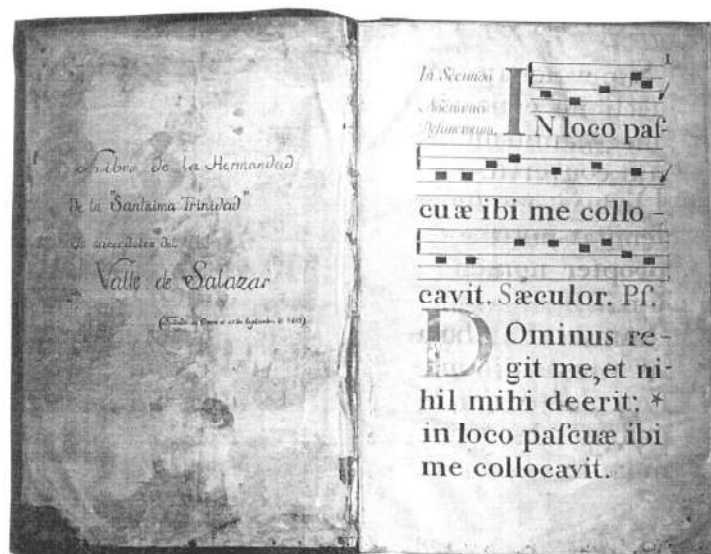 Libro de la Hermandad
De la "Santísima Trinidad"
de sacerdotes del
Valle de Salazar
1
In Secundo
Nocturno
Defunctorum.
IN loco paſ-
cuæ ibi me collo-
cavit. Sæculor. Pſ.
Dominus re-
git me, et ni-
hil mihi deerit: *
in loco paſcuæ ibi
me collocavit.